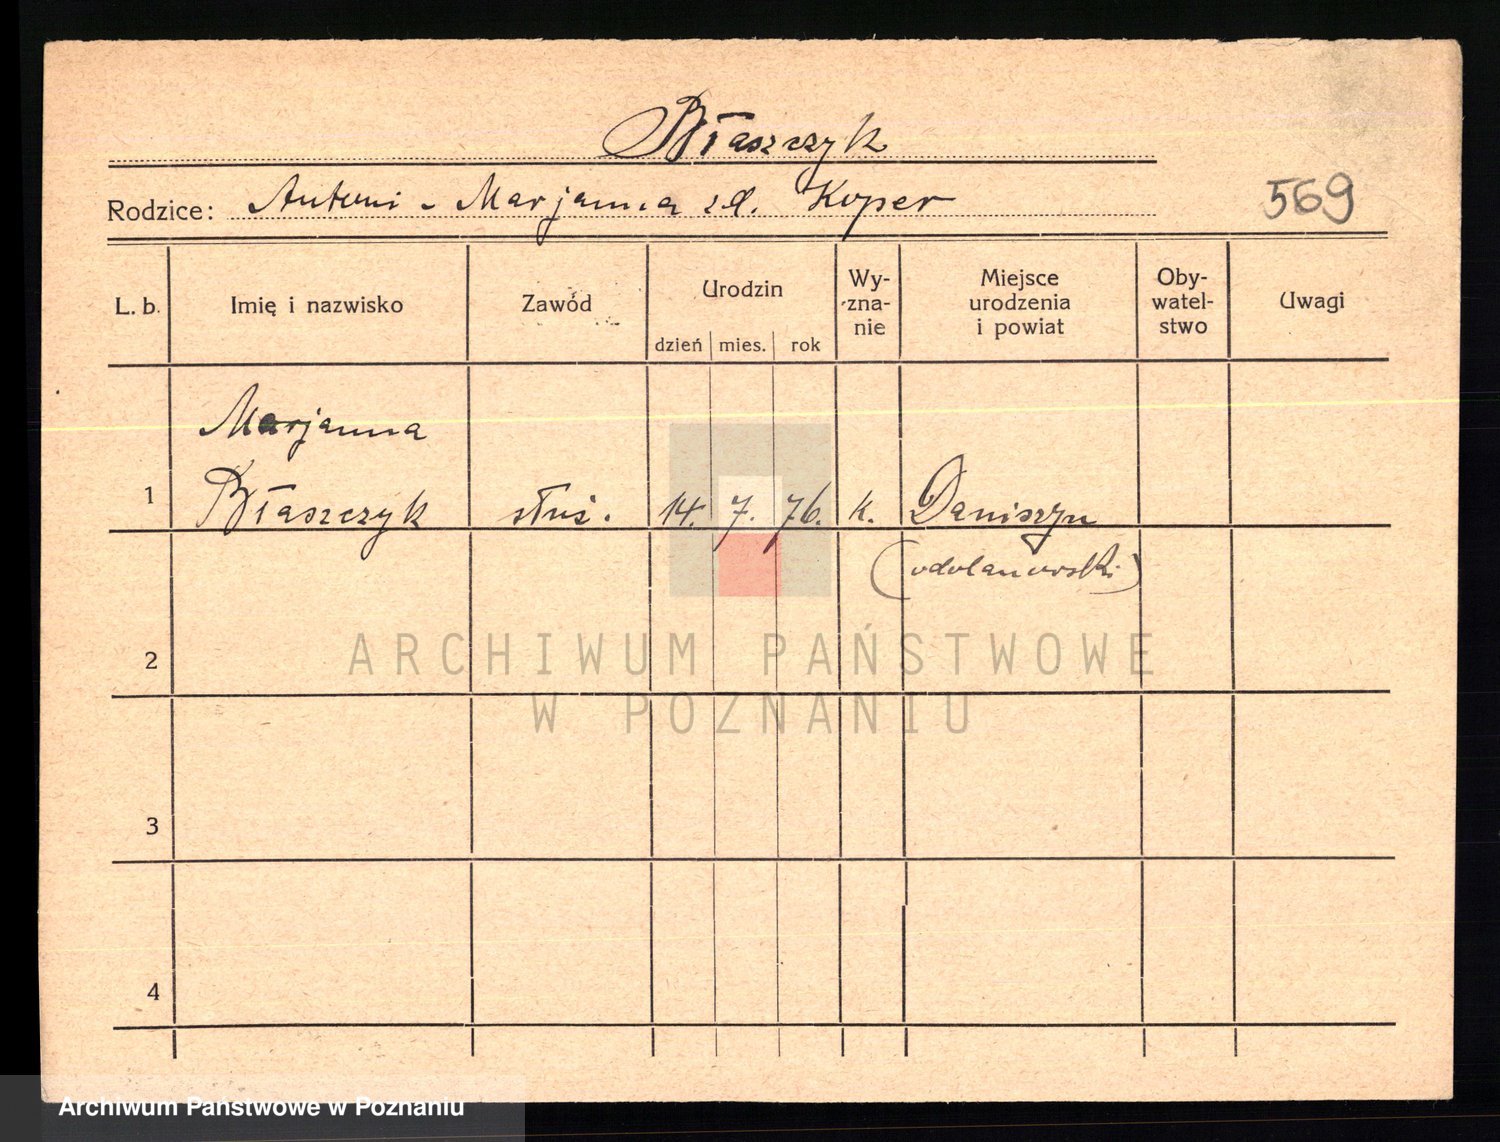 Błaszczyk
Rodzice: Antoni - Marjanna zd. Koper
569
L. b. Imię i nazwisko Zawód Urodzin dzień mies. rok Wy-zna-nie Miejsce urodzenia i powiat Oby-watel-stwo Uwagi
Marjanna
1 Błaszczyk służ. 14. 7. 76. k. Daniszyn
(odolanowski)
2
ARCHIWUM PAŃSTWOWE
W POZNANIU
3
4
Archiwum Państwowe w Poznaniu